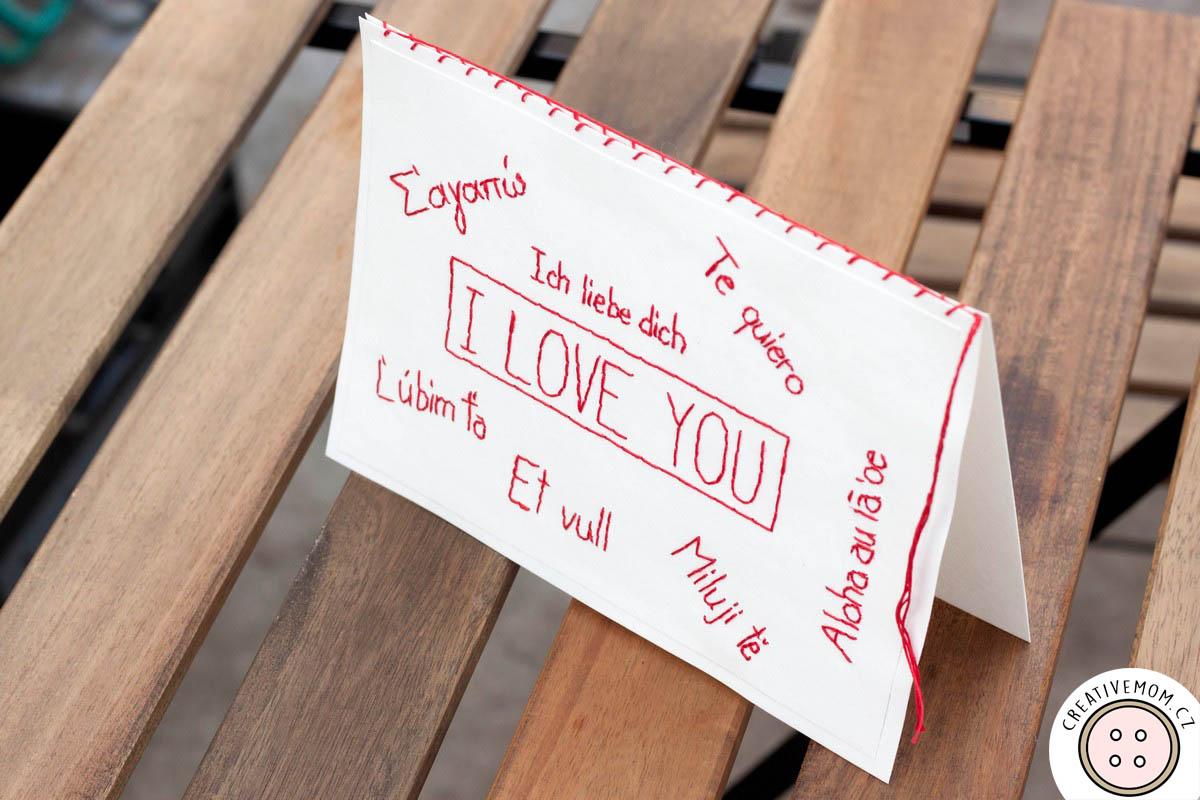 Σ'αγαπώ
Te quiero
Ich liebe dich
I LOVE YOU
Ľúbim ťa
Et vull
Miluji tě
Aloha au iā 'oe
CREATIVEMOM.CZ